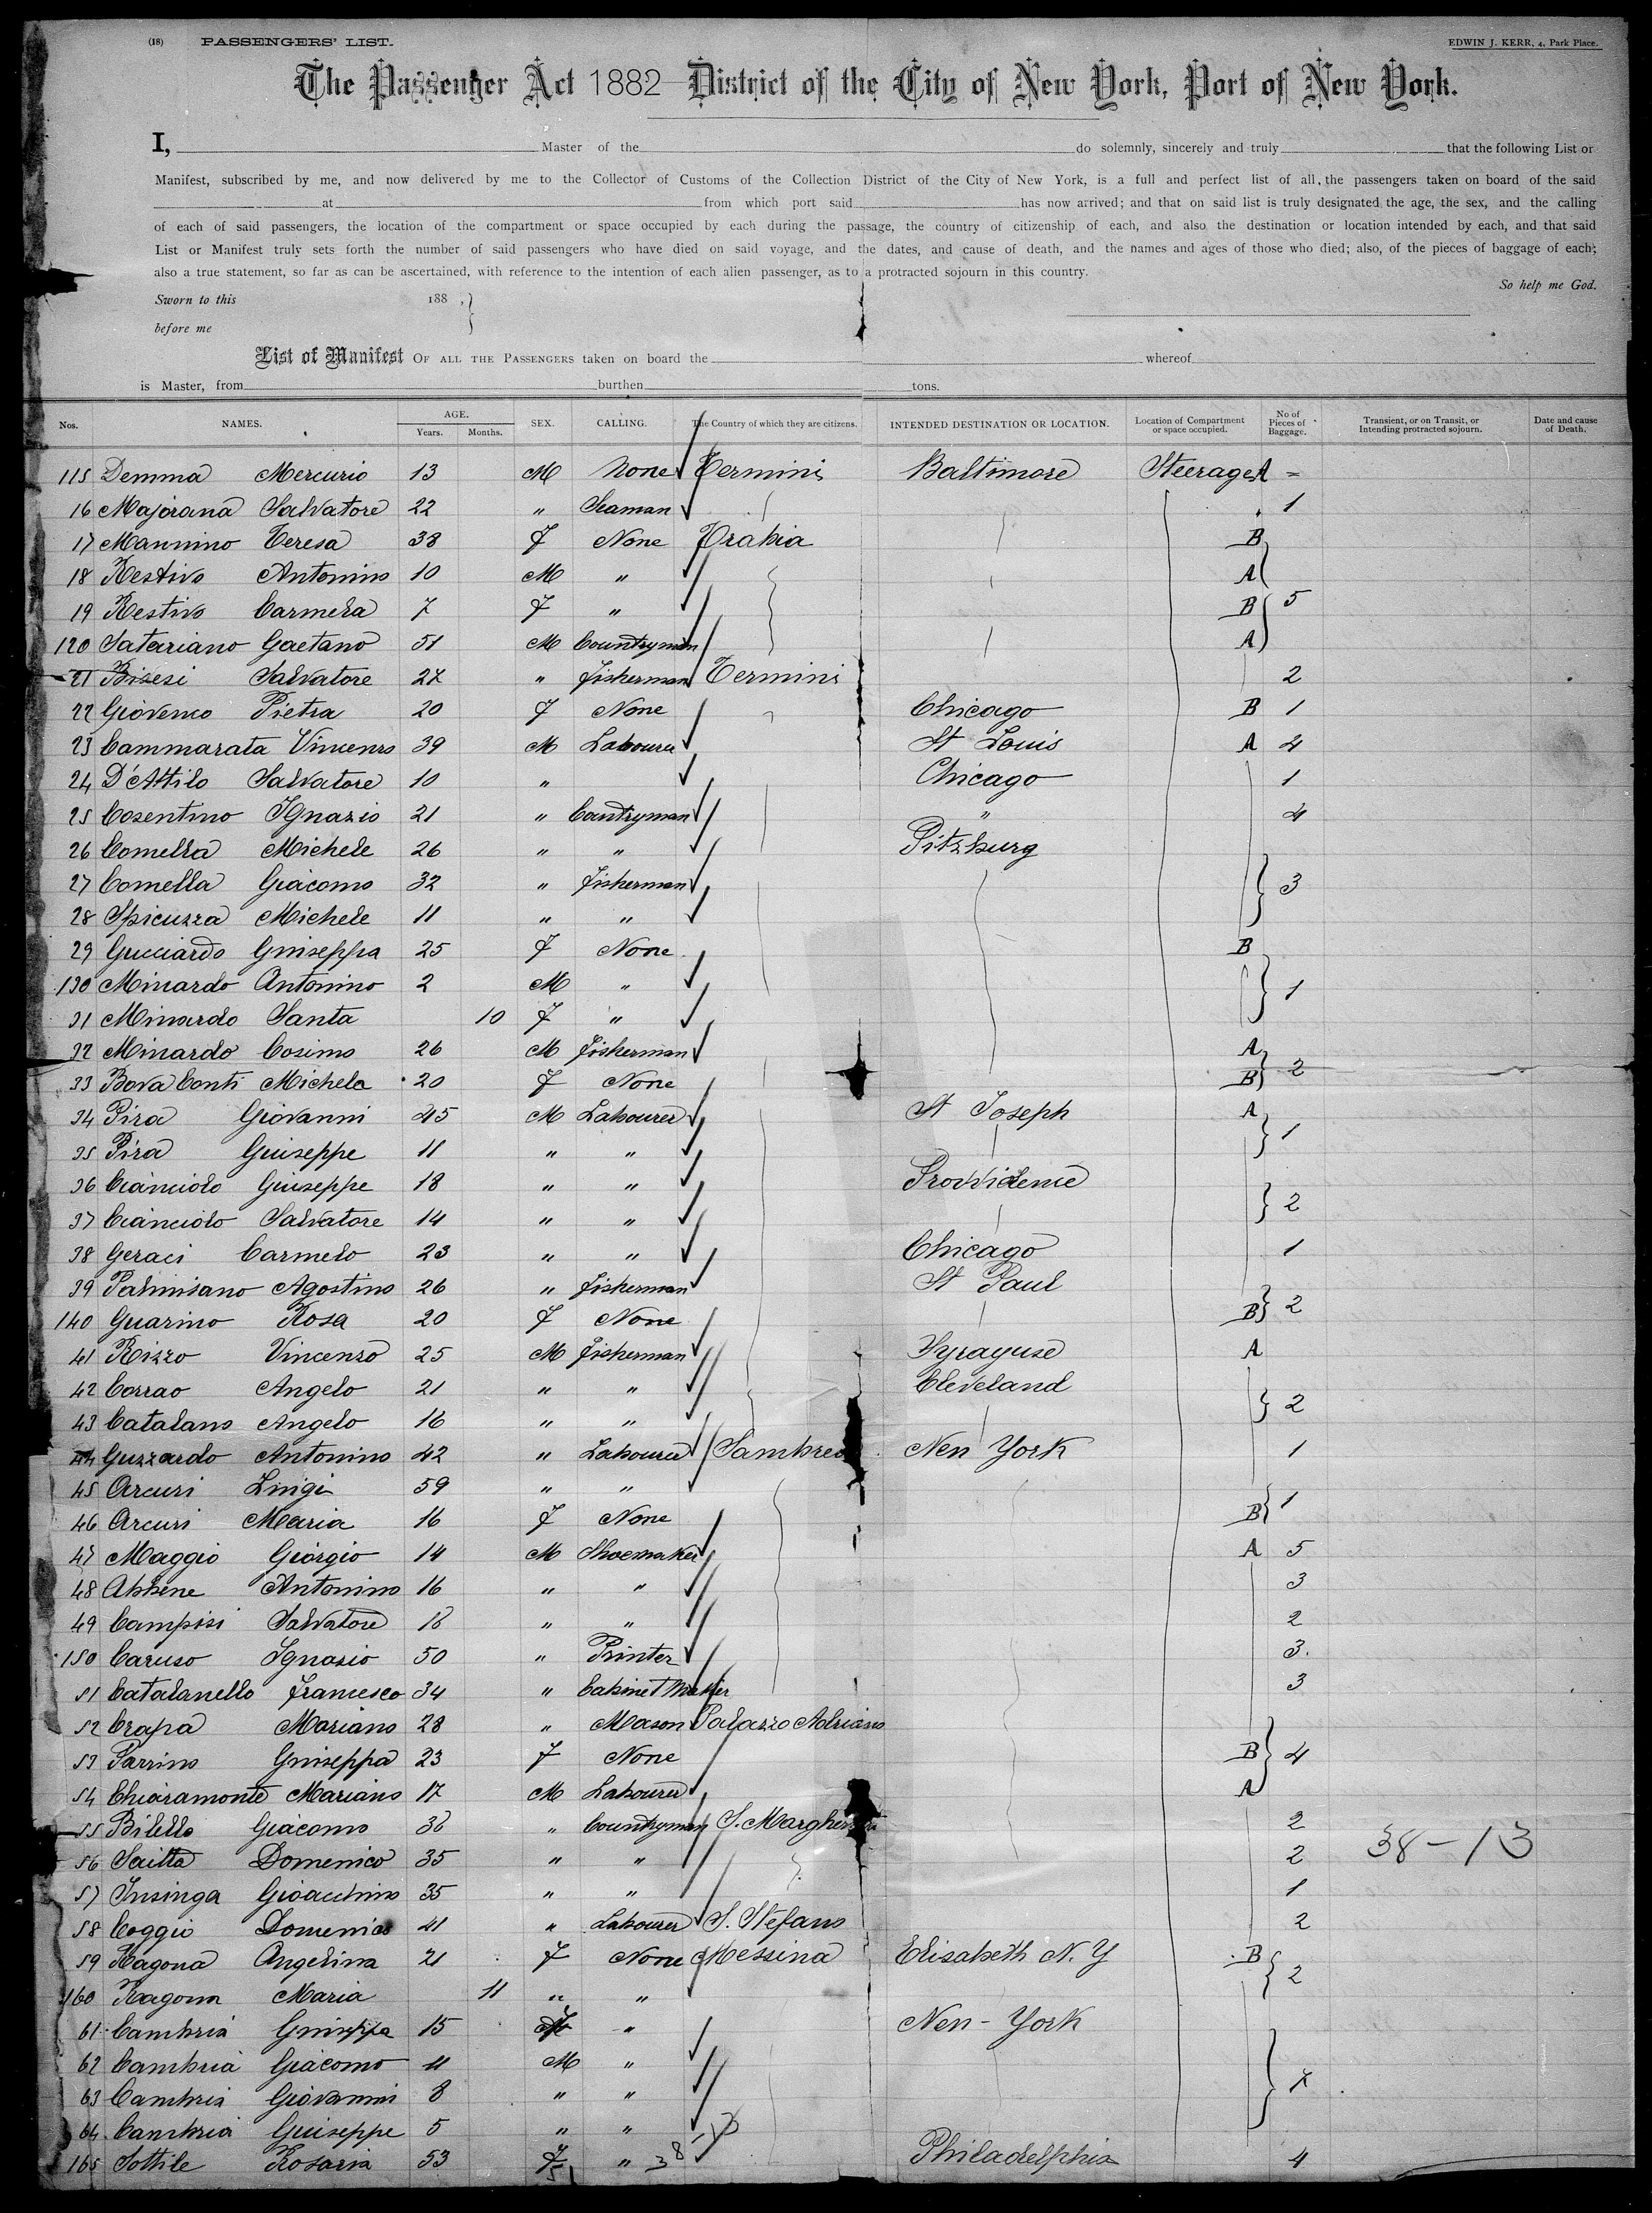 (18) PASSENGERS' LIST. EDWIN J. KERR, 4, Park Place.
The Passenger Act 1882 District of the City of New York, Port of New York.
I, Master of the do solemnly, sincerely and truly that the following List or
Manifest, subscribed by me, and now delivered by me to the Collector of Customs of the Collection District of the City of New York, is a full and perfect list of all, the passengers taken on board of the said
at from which port said has now arrived; and that on said list is truly designated the age, the sex, and the calling
of each of said passengers, the location of the compartment or space occupied by each during the passage, the country of citizenship of each, and also the destination or location intended by each, and that said
List or Manifest truly sets forth the number of said passengers who have died on said voyage, and the dates, and cause of death, and the names and ages of those who died; also, of the pieces of baggage of each;
also a true statement, so far as can be ascertained, with reference to the intention of each alien passenger, as to a protracted sojourn in this country.
So help me God.
Sworn to this 188 , }
before me
List of Manifest OF ALL THE PASSENGERS taken on board the whereof
is Master, from burthen tons.
Nos. NAMES. AGE. Years. Months. SEX. CALLING. The Country of which they are citizens. INTENDED DESTINATION OR LOCATION. Location of Compartment or space occupied. No of Pieces of Baggage. Transient, or on Transit, or Intending protracted sojourn. Date and cause of Death.
115 Demma Mercurio 13 M None Termini Baltimore Steerage A -
16 Majorana Salvatore 22 " Seaman 1
17 Mannino Teresa 38 F None Trabia B
18 Restivo Antonino 10 M " A
19 Restivo Carmela 7 F " B 5
120 Satariano Gaetano 51 M Countryman A
21 Bisesi Salvatore 27 " Fisherman Termini 2
22 Giovenco Pietra 20 F None Chicago B 1
23 Cammarata Vincenzo 39 M Labourer St Louis A 4
24 D'Attilo Salvatore 10 " Chicago 1
25 Cosentino Ignazio 21 " Countryman " 4
26 Comella Michele 26 " " Pitzburg
27 Comella Giacomo 32 " Fisherman 3
28 Spicuzza Michele 11 " "
29 Gucciardo Guiseppa 25 F None B
130 Minardo Antonino 2 M " 1
31 Minardo Santa 10 F "
32 Minardo Cosimo 26 M Fisherman A
33 Bova Conti Michela 20 F None B 2
34 Pira Giovanni 45 M Labourer St Joseph A
35 Pira Guiseppe 11 " " 1
36 Cianciolo Guiseppe 18 " " Providence
37 Cianciolo Salvatore 14 " " 2
38 Geraci Carmelo 23 " " Chicago 1
39 Palmisano Agostino 26 " Fisherman St Paul
140 Guarino Rosa 20 F None B 2
41 Rizzo Vincenzo 25 M Fisherman Syrayuse A
42 Corrao Angelo 21 " " Cleveland
43 Catalano Angelo 16 " " 2
44 Guzzardo Antonino 42 " Labourer New York 1
45 Arcuri Luigi 59 " "
46 Arcuri Maria 16 F None B 1
47 Maggio Giorgio 14 M Shoemaker A 5
48 Abbene Antonino 16 " " 3
49 Campisi Salvatore 18 " " 2
150 Caruso Ignazio 50 " Printer 3.
51 Catalanello Francesco 34 " Cabinet Maker 3
52 Crapa Mariano 28 " Mason Palazzo Adriano
53 Parrino Guiseppa 23 F None B 4
54 Chiaramonte Mariano 17 M Labourer A
55 Bilello Giacomo 36 " Countryman S. Margherita 2
56 Saitta Domenico 35 " " 2 38-13
57 Insinga Gioacchino 35 " " 1
58 Coggio Domenico 41 " Labourer S. Stefano 2
59 Ragona Angelina 21 F None Messina Elisabeth N. Y B
160 Ragona Maria 11 " " 2
61 Cambria Guiseppa 15 F " New-York
62 Cambria Giacomo 11 M "
63 Cambria Giovanni 8 " " 7
64 Cambria Guiseppe 5 " "
165 Sottile Rosaria 53 F " Philadelphia 4
51 38-13